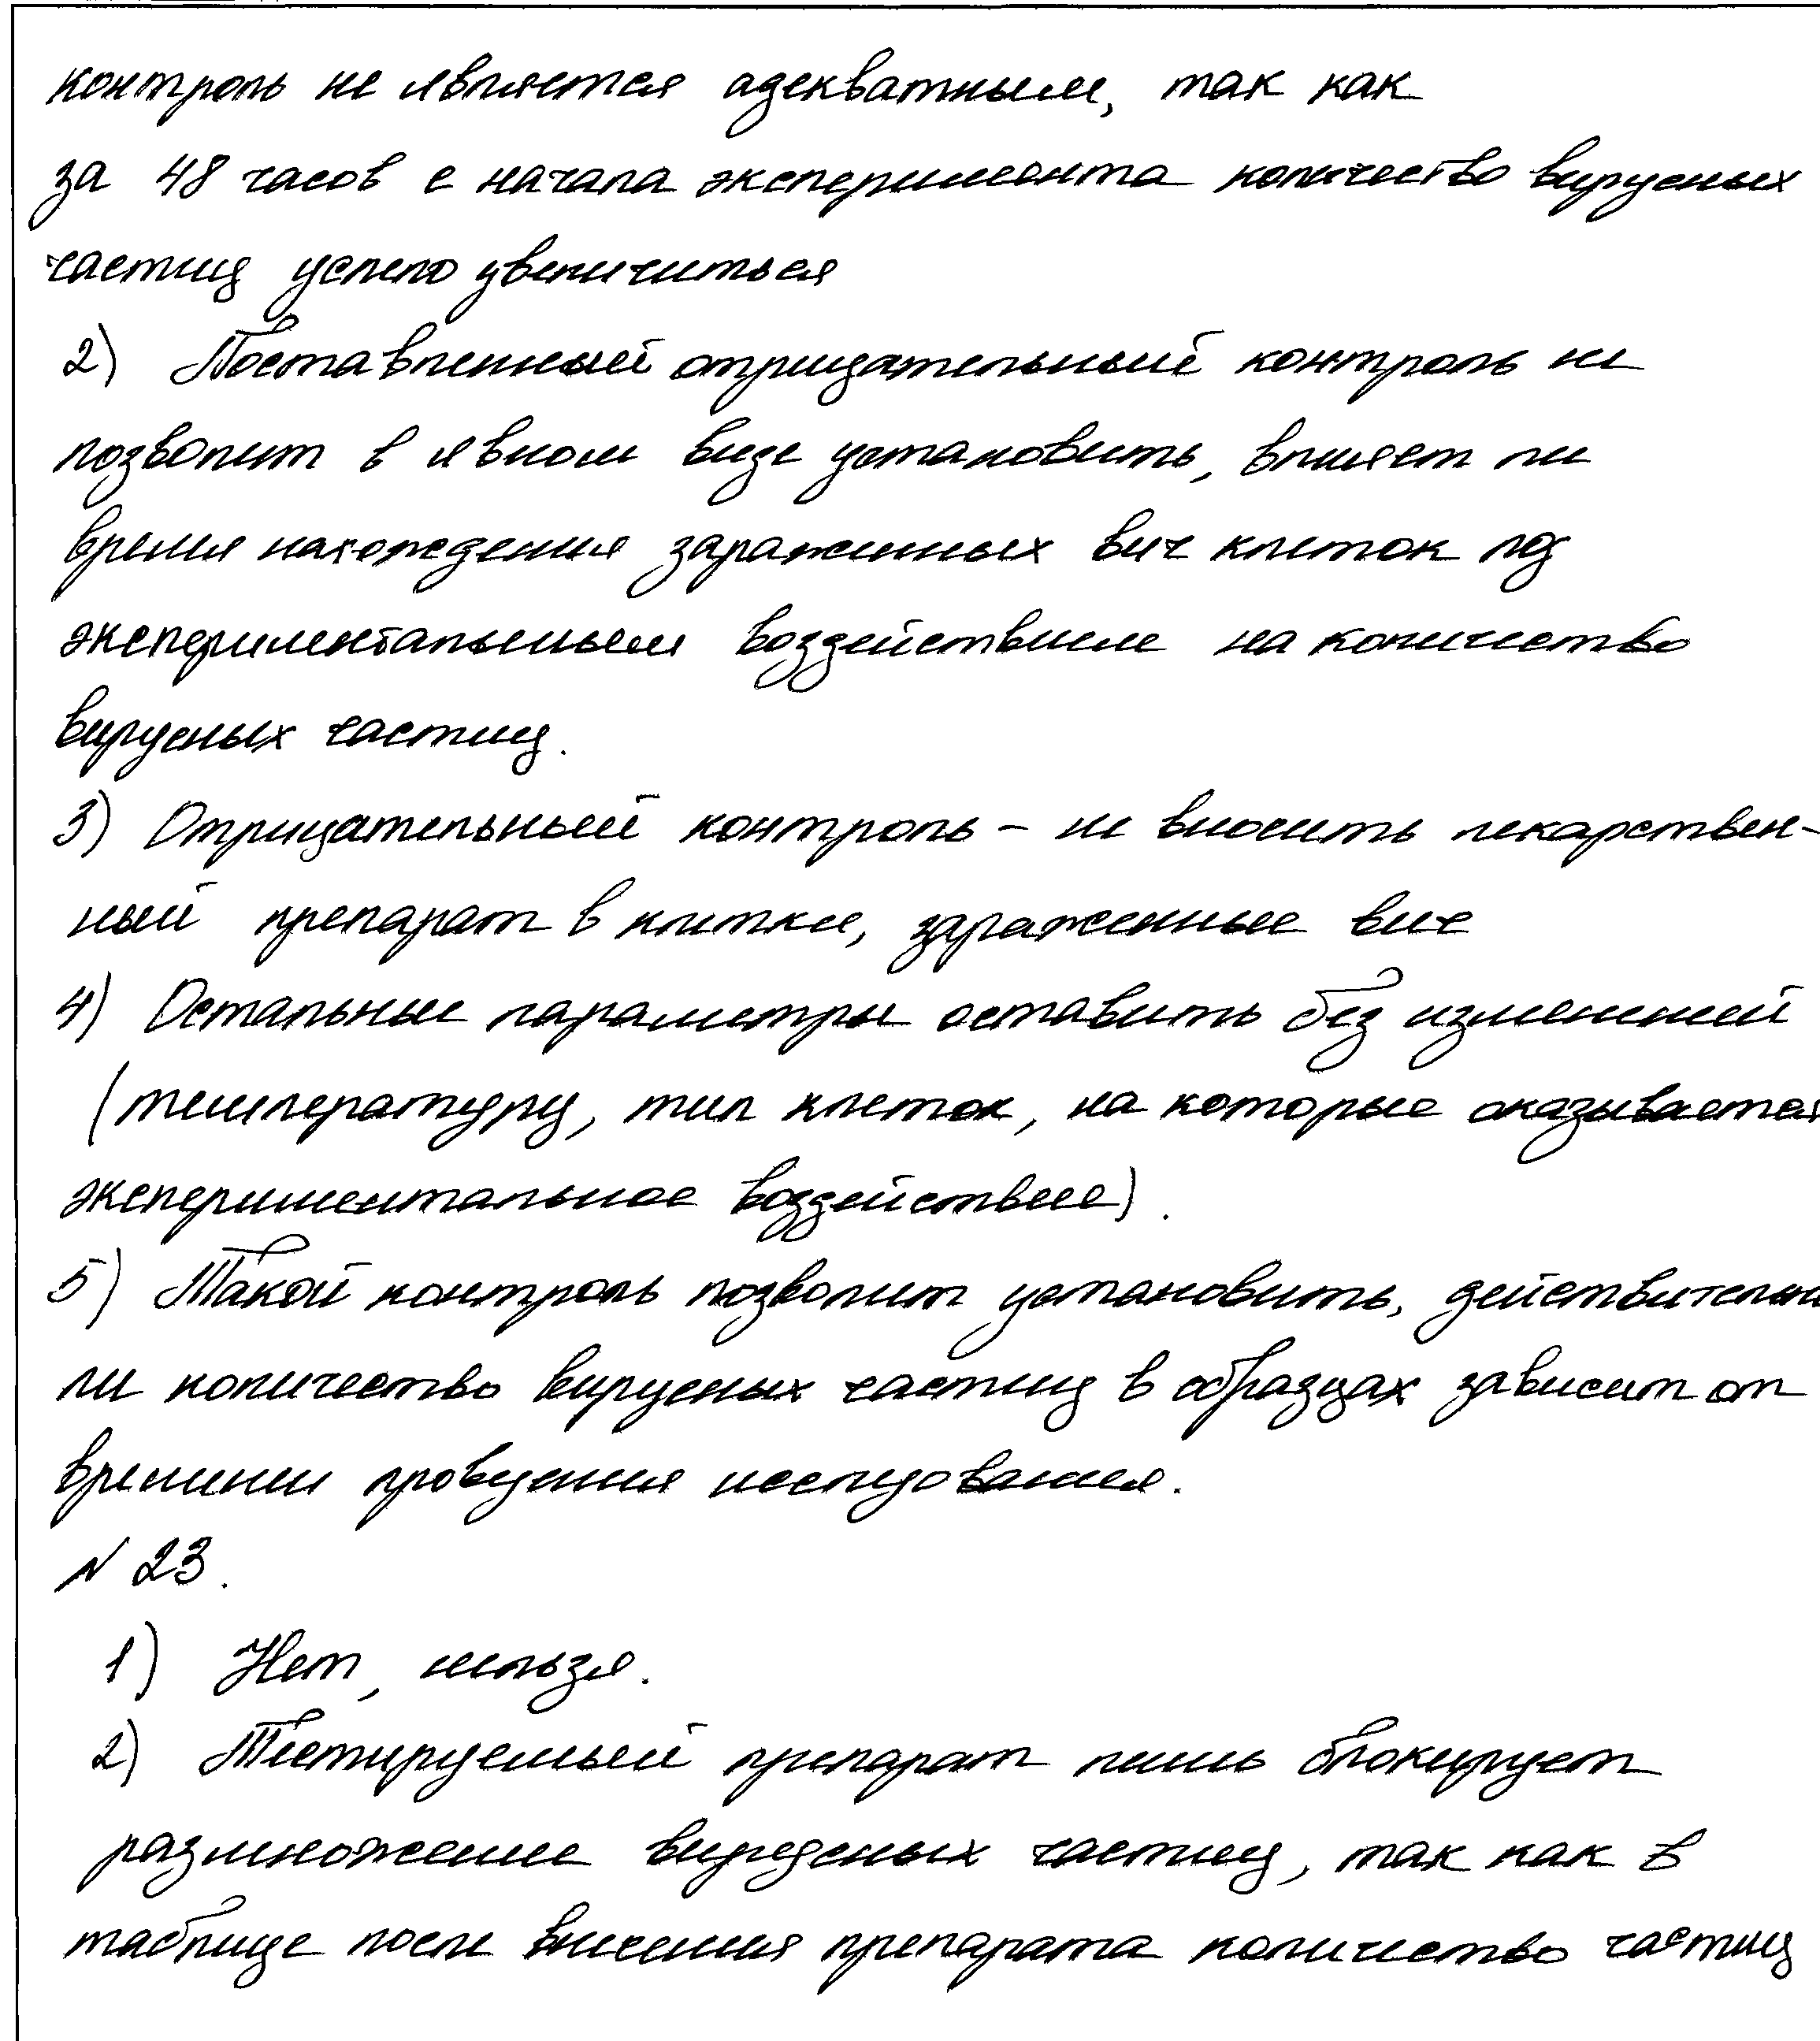 контроль не является адекватным, так как
за 48 часов с начала эксперимента количество вирусных
частиц успело увеличиться
2) Поставленный отрицательный контроль не
позволит в явном виде установить, влияет ли
время нахождения зараженных вич клеток под
экспериментальным воздействием на количество
вирусных частиц.
3) Отрицательный контроль – не вносить лекарствен-
ный препарат в клетки, зараженные вич
4) Остальные параметры оставить без изменений
(температуру, тип клеток, на которые оказывается
экспериментальное воздействие).
5) Такой контроль позволит установить, действительно
ли количество вирусных частиц в образцах зависит от
времени проведения исследования.
N 23.
1) Нет, нельзя.
2) Тестируемый препарат лишь блокирует
размножение вирусных частиц, так как в
таблице после внесения препарата количество частиц